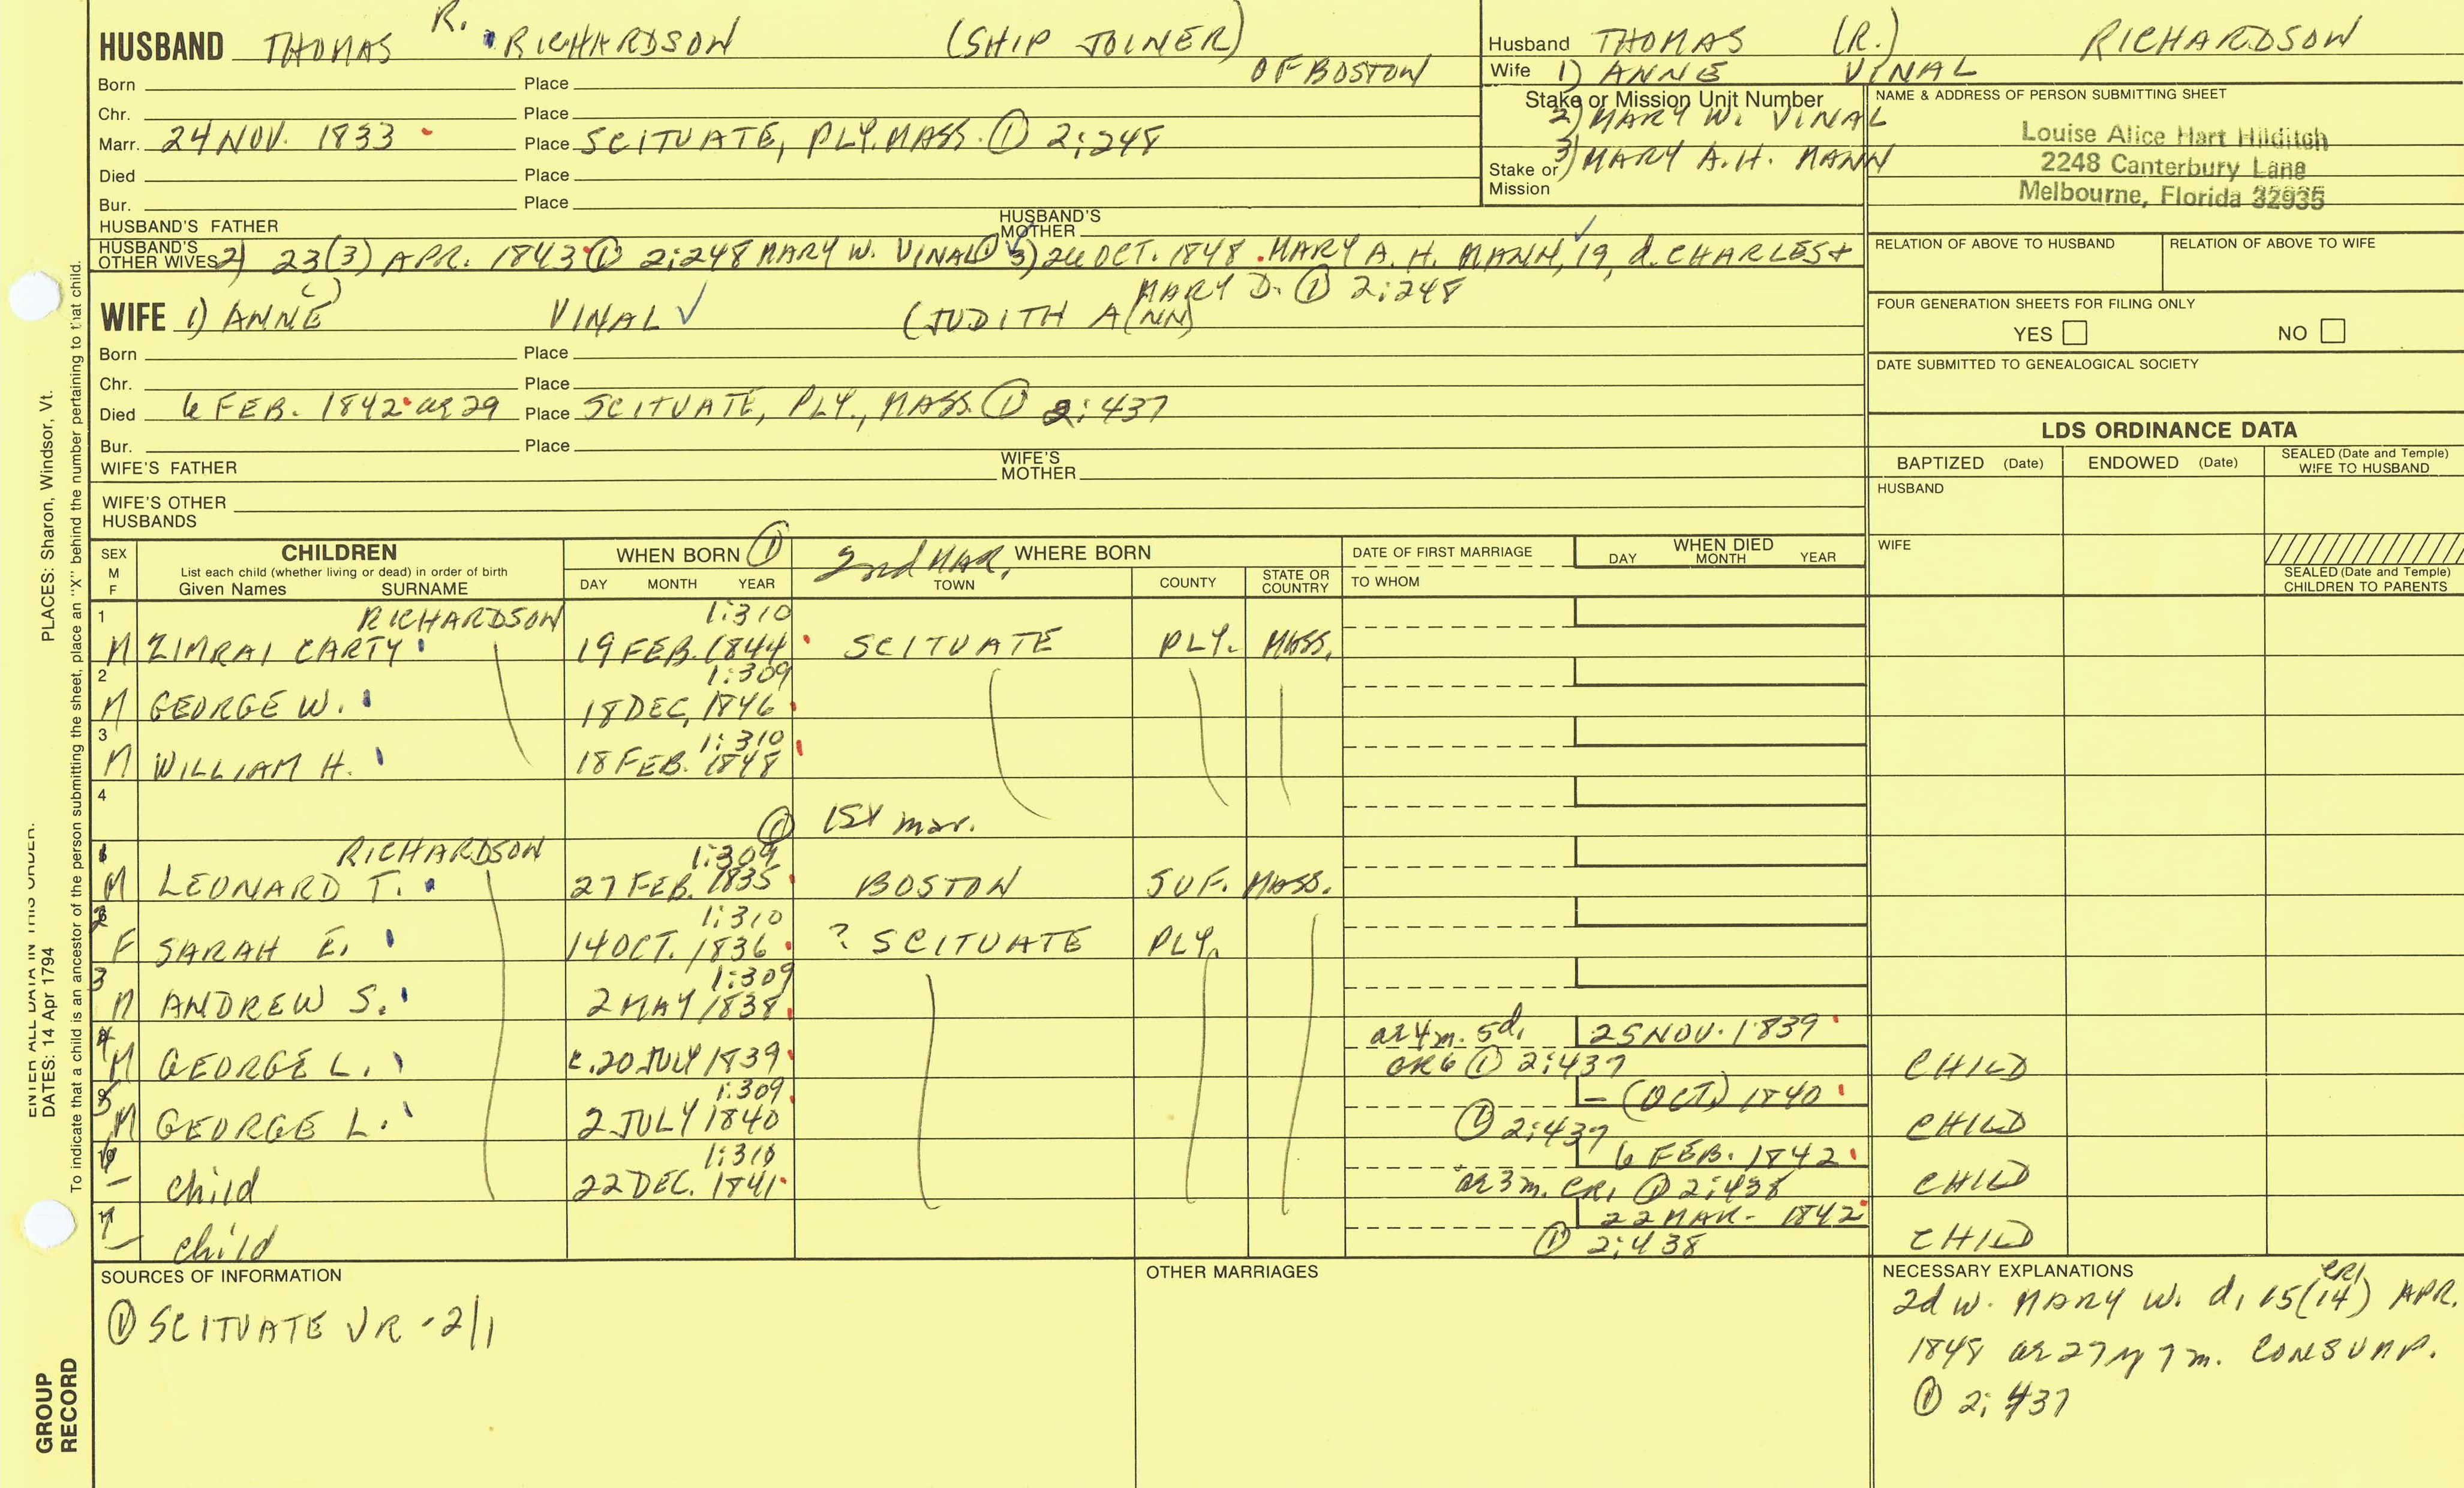 HUSBAND THOMAS R. RICHARDSON (SHIP JOINER) OF BOSTON
Born Place
Chr. Place
Marr. 24 NOV. 1833 Place SCITUATE, PLY. MASS. ① 2:248
Died Place
Bur. Place
HUSBAND'S FATHER HUSBAND'S MOTHER
HUSBAND'S OTHER WIVES 2) 23(3) APR. 1843 ① 2:248 MARY W. VINAL ① 3) 26 OCT. 1848 MARY A. H. MANN, 19, d. CHARLES +
MARY D. ① 2:248
WIFE 1) ANNE VINAL ✓ (JUDITH A(NN)
Born Place
Chr. Place
Died 6 FEB. 1842 ae 29 Place SCITUATE, PLY., MASS. ① 2:437
Bur. Place
WIFE'S FATHER WIFE'S MOTHER
WIFE'S OTHER HUSBANDS
Husband THOMAS (R.) RICHARDSON
Wife 1) ANNE VINAL
Stake or Mission Unit Number
2) MARY W. VINAL
3) MARY A. H. MANN
Stake or Mission
NAME & ADDRESS OF PERSON SUBMITTING SHEET
Louise Alice Hart Hilditch
2248 Canterbury Lane
Melbourne, Florida 32935
RELATION OF ABOVE TO HUSBAND RELATION OF ABOVE TO WIFE
FOUR GENERATION SHEETS FOR FILING ONLY
YES NO
DATE SUBMITTED TO GENEALOGICAL SOCIETY
LDS ORDINANCE DATA
BAPTIZED (Date) ENDOWED (Date) SEALED (Date and Temple) WIFE TO HUSBAND
HUSBAND
WIFE
SEALED (Date and Temple) CHILDREN TO PARENTS
SEX M F
CHILDREN
List each child (whether living or dead) in order of birth
Given Names SURNAME
WHEN BORN ①
DAY MONTH YEAR
2nd MAR. WHERE BORN
TOWN COUNTY STATE OR COUNTRY
DATE OF FIRST MARRIAGE
TO WHOM
WHEN DIED
DAY MONTH YEAR
1 RICHARDSON 1:310
M ZIMRAI CARTY 19 FEB. 1844 SCITUATE PLY. MASS.
2 1:309
M GEORGE W. 18 DEC. 1846
3 1:310
M WILLIAM H. 18 FEB. 1848
4
① 1st mar.
1 RICHARDSON 1:309
M LEONARD T. 27 FEB. 1835 BOSTON SUF. MASS.
2 1:310
F SARAH E. 14 OCT. 1836 ? SCITUATE PLY.
3 1:309
M ANDREW S. 2 MAY 1838
4 ae 4 m. 5 d. 25 NOV. 1839
M GEORGE L. c. 20 JULY 1839 GR6 ① 2:437 CHILD
5 1:309 – (OCT) 1840
M GEORGE L. 2 JULY 1840 ① 2:437 CHILD
6 1:310 6 FEB. 1842
– child 22 DEC. 1841 ae 3 m. CR1 ① 2:438 CHILD
7 22 MAR. 1842
– child ① 2:438 CHILD
SOURCES OF INFORMATION
① SCITUATE VR - 2/1
OTHER MARRIAGES
NECESSARY EXPLANATIONS
2d w. MARY W. d. 15(14) CR1 APR.
1848 ae 27 y 7 m. CONSUMP.
① 2:437
PLACES: Sharon, Windsor, Vt.
DATES: 14 Apr 1794
To indicate that a child is an ancestor of the person submitting the sheet, place an "X" behind the number pertaining to that child.
GROUP
RECORD